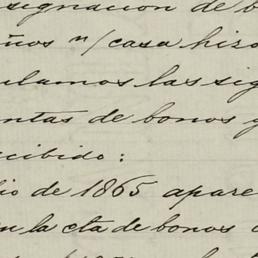 signacion de b
ños n/ casa hizo
ulamos las sig
ntas de bonos y
cibido:
io de 1865 apare
n la cta de bonos